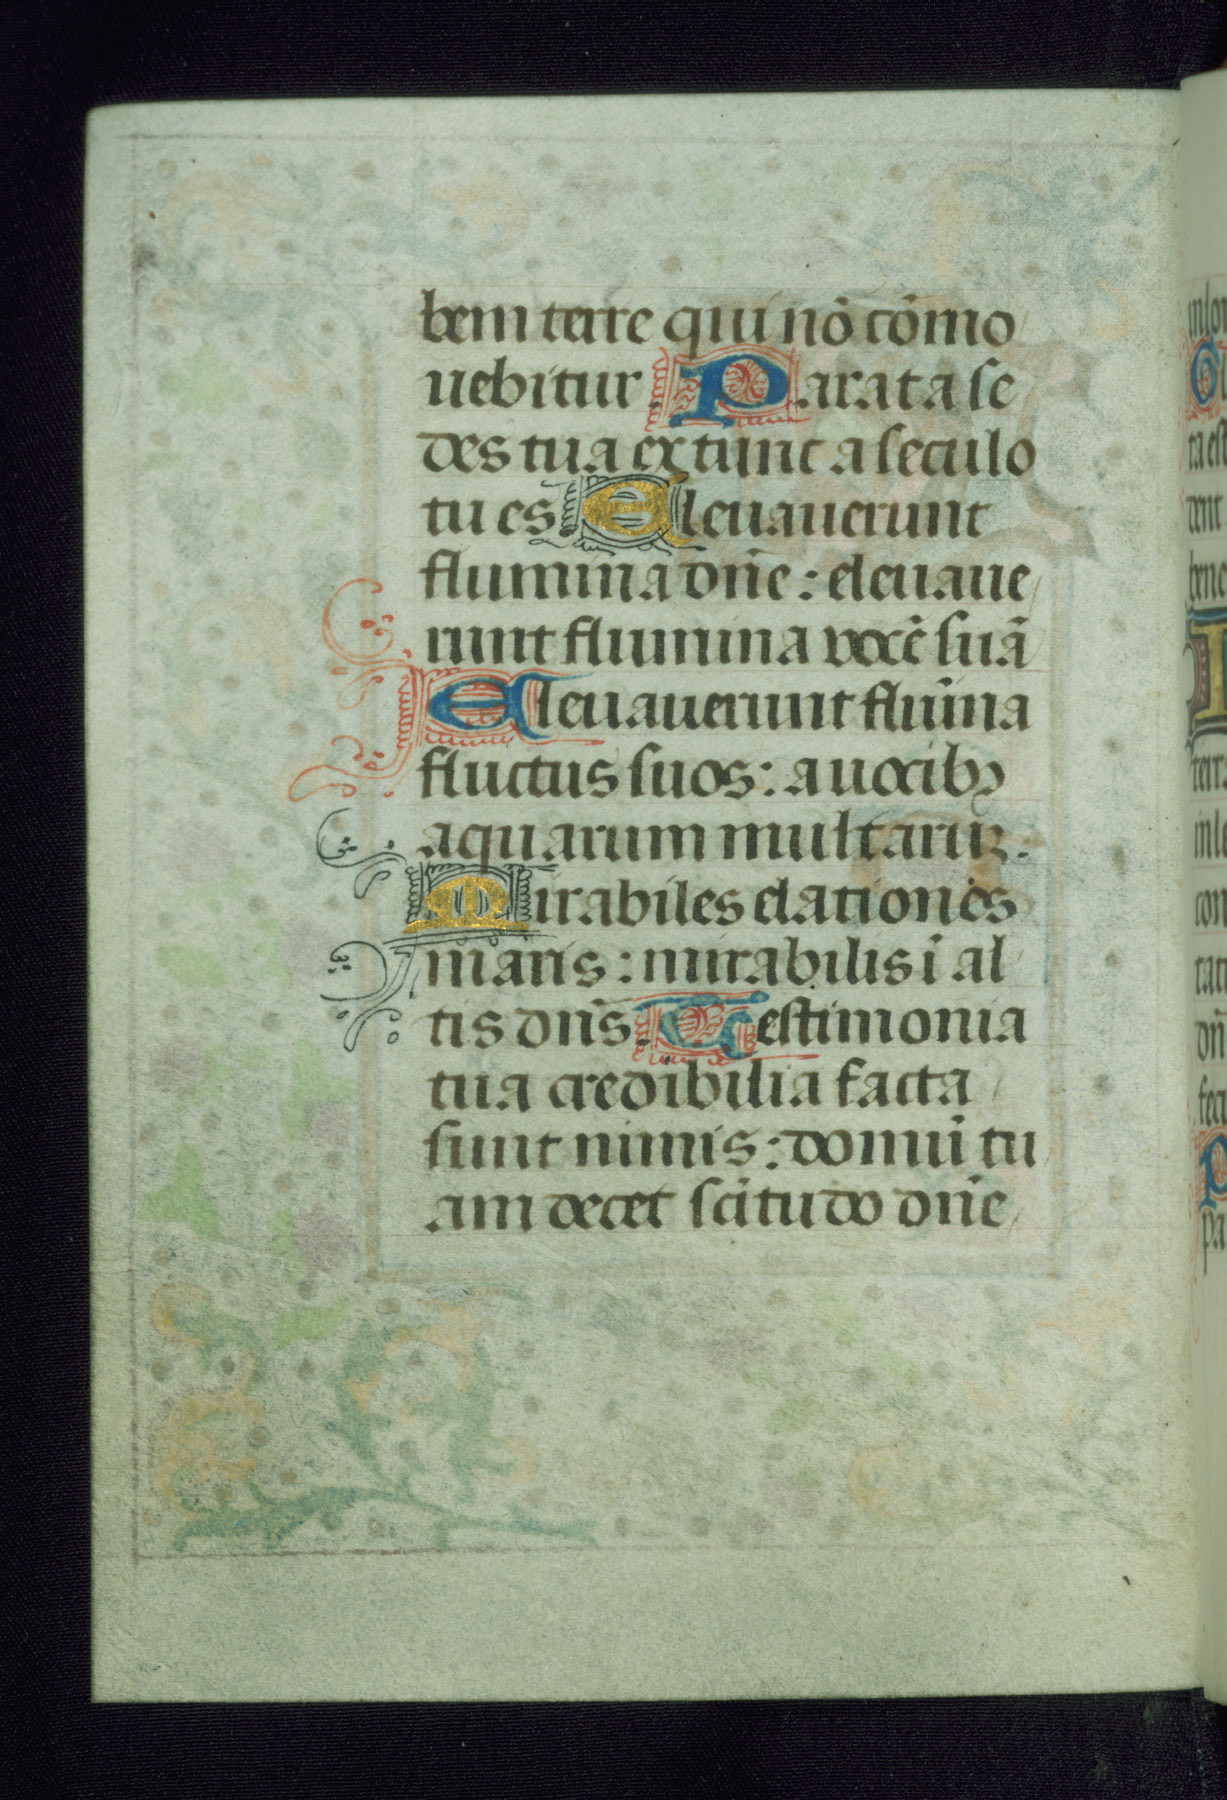 bem terre qui nō cōmo
uebitur. Parata se
des tua ex tunc a seculo
tu es Eleuauerunt
flumina dn̄e : eleuaue
runt flumina vocē suā
Eleuauerunt flum̄ina
fluctus suos : a uocibꝫ
aquarum multarꝝ.
Mirabiles elationes
maris : mirabilis ī al
tis dn̄s. Testimonia
tua credibilia facta
sunt nimis : domū tu
am decet sc̄itudo dn̄e